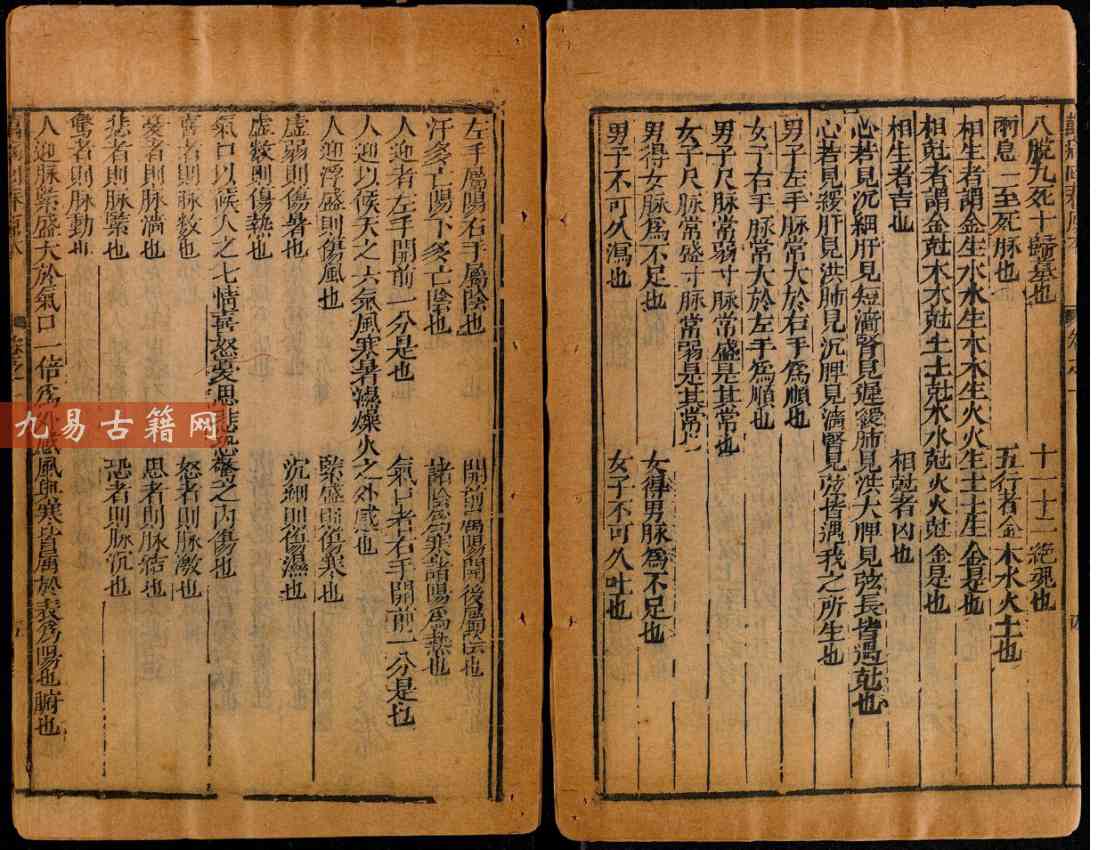 八脫九死十歸墓也　十一十二絕魂也
兩息一至死脉也　五行者金木水火土也
相生者謂金生水水生木木生火火生土土生金是也
相尅者謂金尅木木尅土土尅水水尅火火尅金是也
相生者吉也　相尅者凶也
心若見沉細肝見短濇腎見遲緩肺見洪大脾見弦長皆遇尅也
心若見緩肝見洪肺見沉脾見濇腎見弦皆遇我之所生也
男子左手脉常大於右手為順也
女子右手脉常大於左手為順也
男子尺脉常弱寸脉常盛是其常也
女子尺脉常盛寸脉常弱是其常也
男得女脉為不足也　女得男脉為不足也
男子不可久瀉也　女子不可久吐也
左手屬陽右手屬陰也　關前屬陽關後屬陰也
汗多亡陽下多亡陰也　諸陰為寒諸陽為熱也
人迎者左手關前一分是也　氣口者右手關前一分是也
人迎以候天之六氣風寒暑濕燥火之外感也
人迎浮盛則傷風也　緊盛則傷寒也
虛弱則傷暑也　沉細則傷濕也
虛數則傷熱也
氣口以候人之七情喜怒憂思悲恐驚之內傷也
喜者則脉數也　怒者則脉激也
憂者則脉濇也　思者則脉結也
悲者則脉緊也　恐者則脉沉也
驚者則脉動也
人迎脉緊盛大於氣口一倍為外感風與寒皆屬於表為陽也腑也
九易古籍网